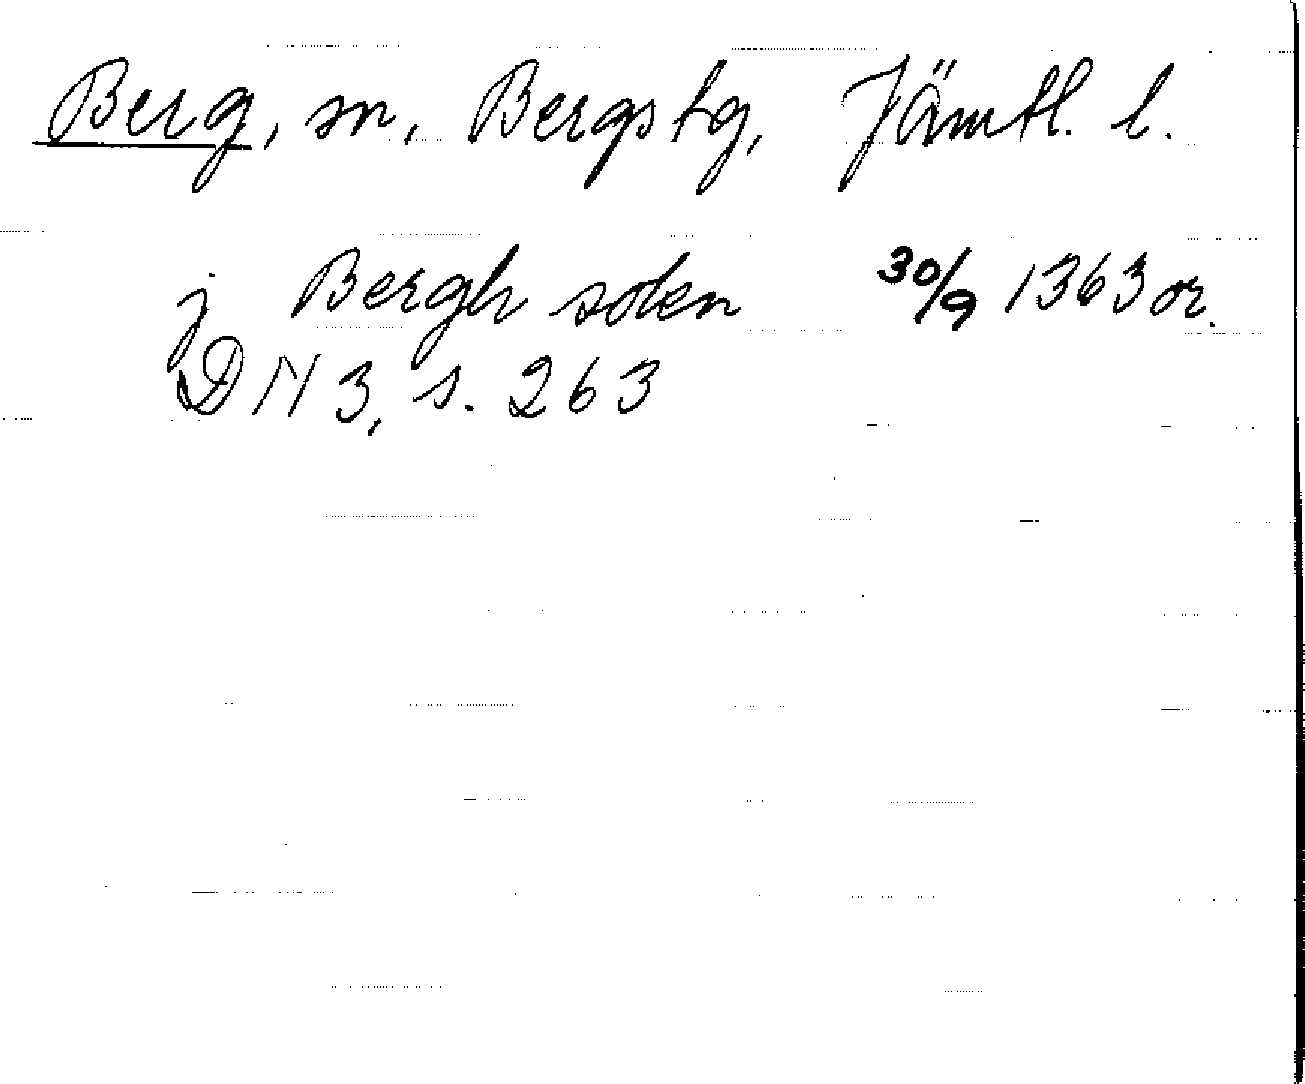 Berg, sn, Bergs tg, Jämtl. l.
j Bergh solen 30/9 1363 or.
DN 3, s. 263